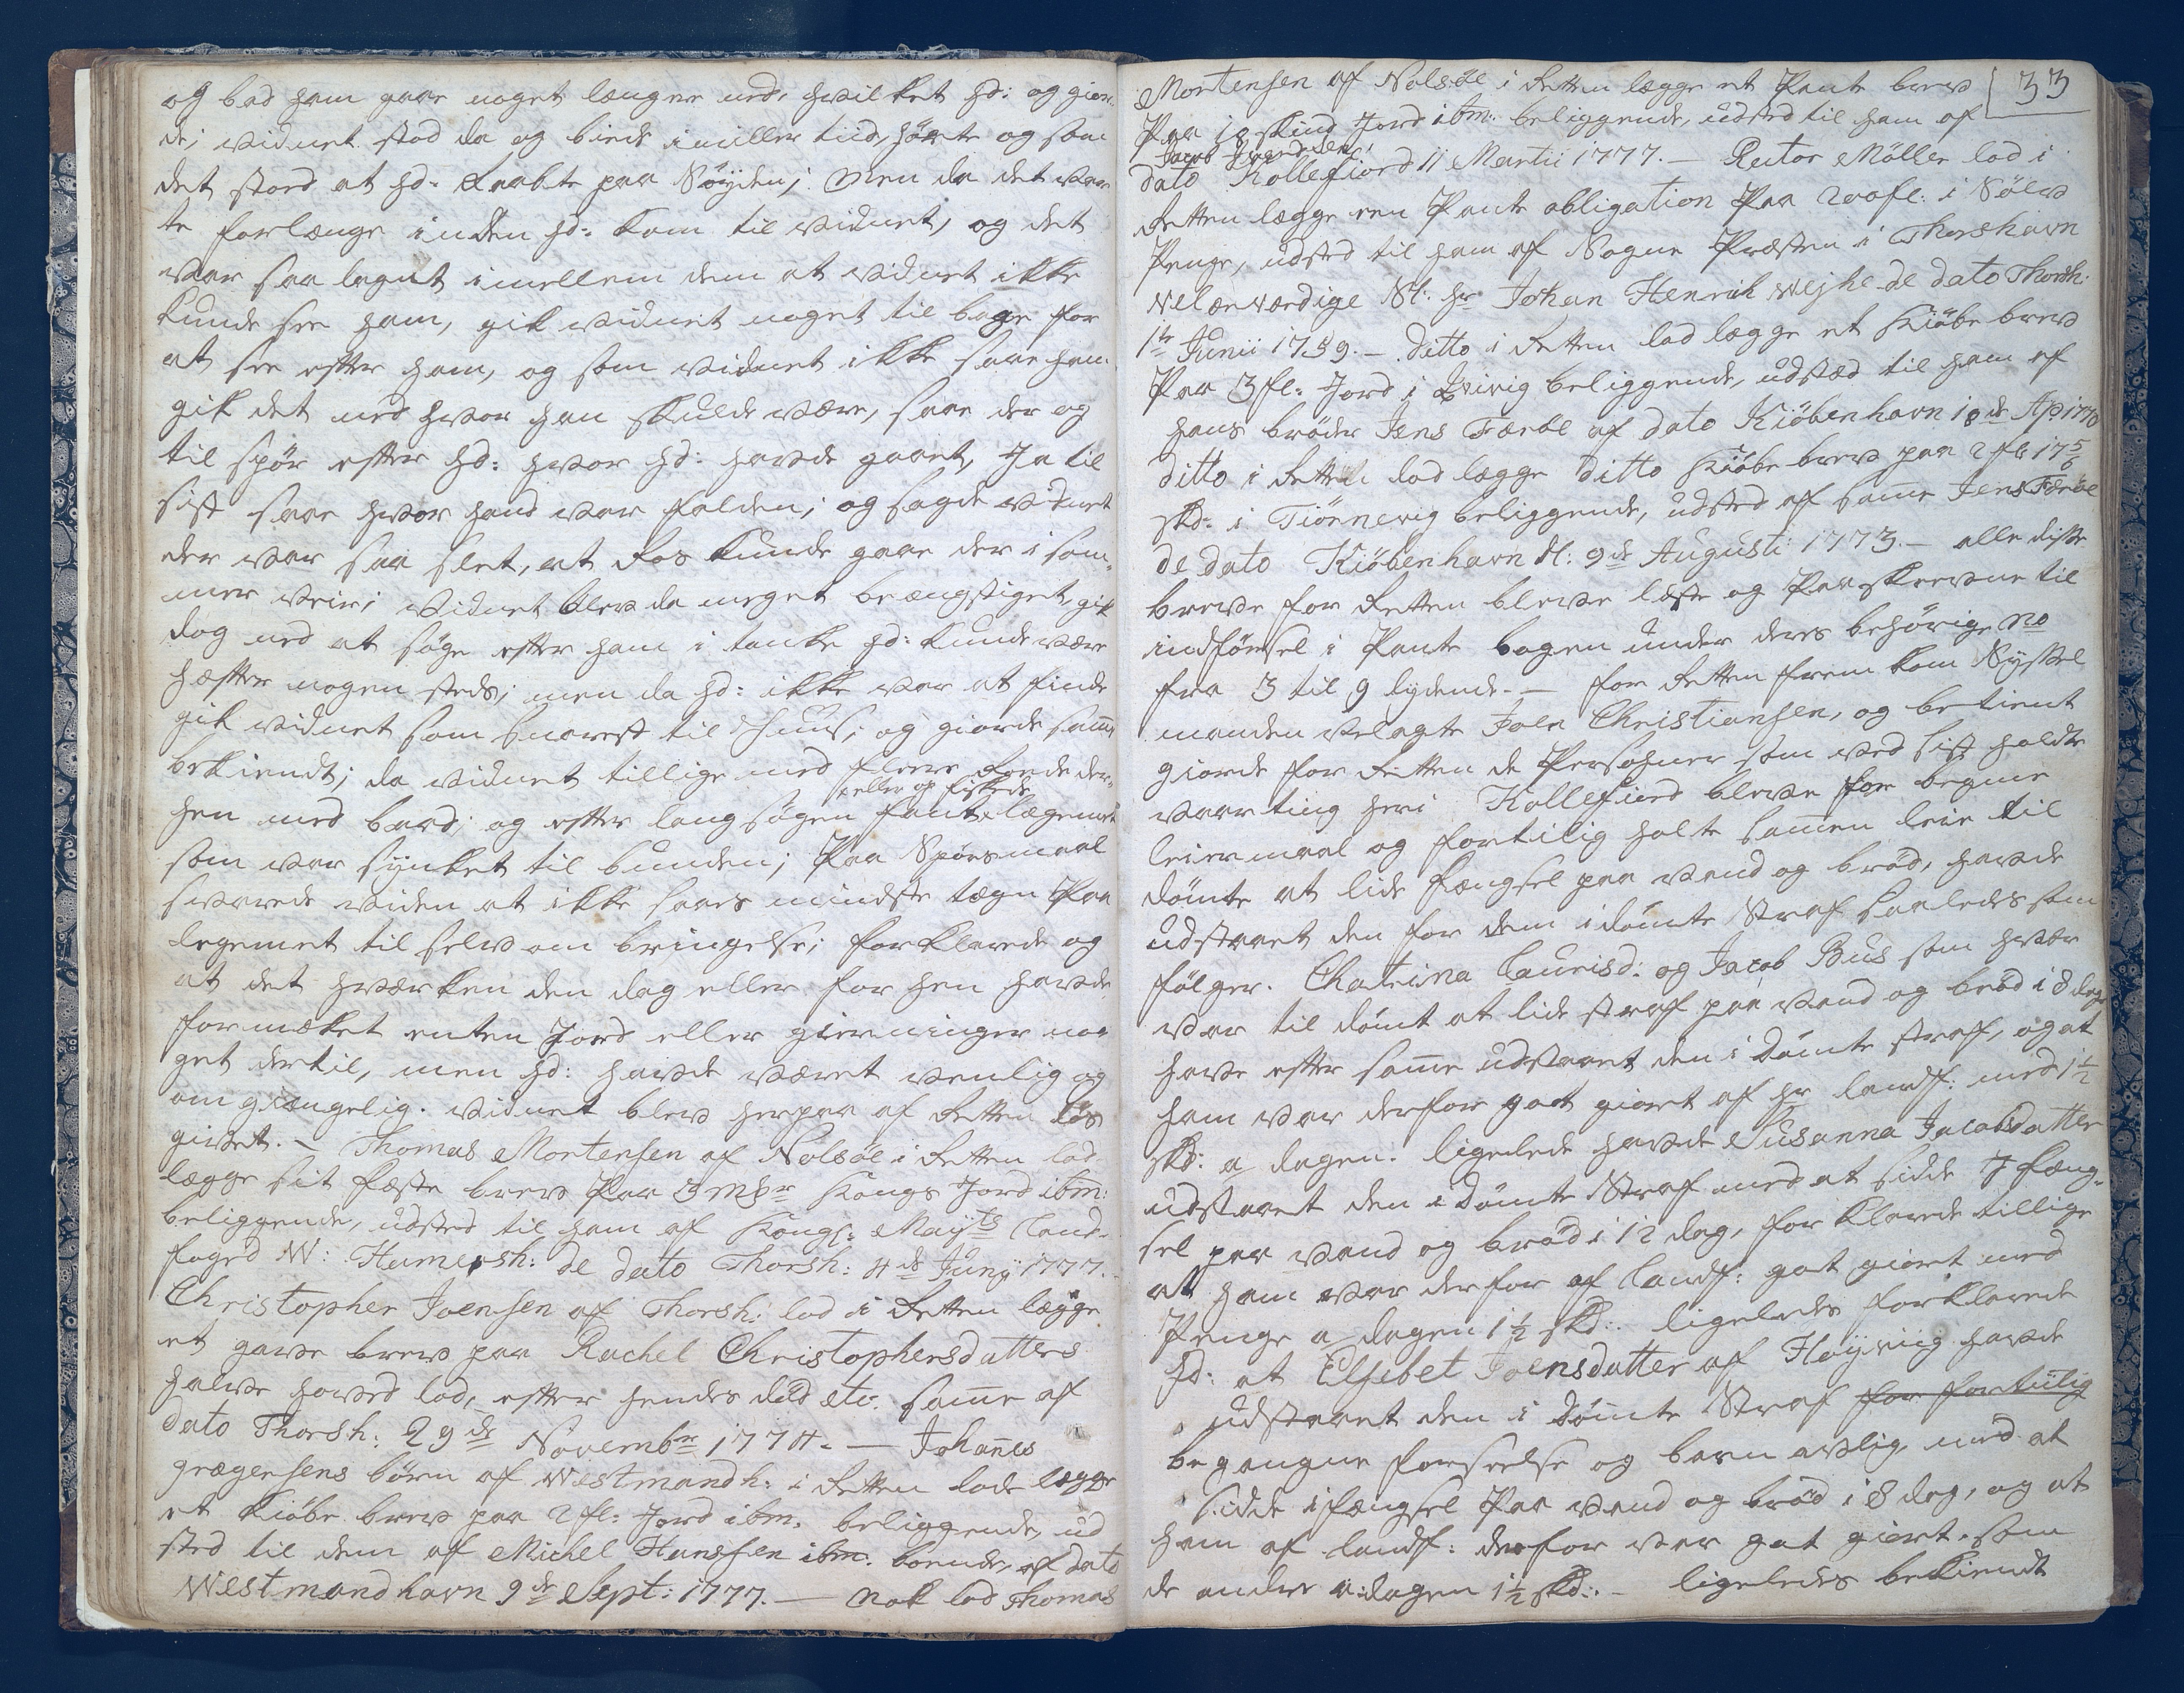 og bad ham gaae noget længer ned, hvilket hd: og gior-
de; vidnet stod da og biede imiller tiid, hørte og som
det stod at hd: Raabte paa Søyden; men da det var-
te forlænge inden hd: kom til vidnet, og det
var saa laget imellem dem at vidnet ikke
kunde see ham, gik vidnet noget til bage for
at see efter ham, og som vidnet ikke saae ham
gik det ned hvor han skulde være, saae der og
til spör efter hd: hvor hd: havde gaaet, Ja til
sist saae hvor hand var falden; og sagde vidnet
der var saa slet, at Ros kunde gaae der i som-
mer veir; vidnet blev da meget beængstiget, gik
dog ned at søge efter ham i tanke hd: kunde være
hæfter nogen steds; men da hd: ikke var at finde
gik vidnet som snarest til Huus; og giorde samme
bekiendt; da vidnet tillige med fleere Roede der-
eller op fiskede
hen med baad; og efter lang søgen fant lægemet
som var sÿnket til bunden; Paa Spörsmaal
svarede viden at ikke saaes mindste tægn Paa
legemet til selv om bringelse; forklarede og
at det hværken den dag eller for hen havde
formærket enten Jord eller gierninger no-
get dertil, men hd: havde været venlig og
omgiængelig. vidnet blev herpaa af Retten løs
givet. — Thomas Mortensen af Nolsöe i Retten lod
lægge sit fæste brev Paa 3 mkr Kongs Jord ibm:
beliggende, udsted til ham af Kongl: Mayts Land-
foged W: Hamersh: de dato Thorsh: 4de Junÿ 1777.
Christopher Joensen af Thorsh: lod i Retten lægge
et gave brev paa Rachel Christophersdatters
halve hoved lod, efter hendes död etc. samme af
dato Thorsh: 29de Novembr 1774. — Johannes
grægersens börn af Westmandh: i Retten lode lægge
et Kiöbe brev paa 2 fl: Jord ibm: beliggende, ud
sted til dem af Michel Hanssen ibm: boende, af dato
Westmandhavn 9de Sept: 1777. — Nok lod Thomas
33
Mortensen af Nolsöe i Retten lægge et Pante brev
Paa 18 skind Jord ibm: beliggende, udsted til ham af
Jacob
dato Kollefiord 11 Martii 1777. — Rector Möller lod i
Retten lægge een Pante obligation Paa 200 fl: i Sölv
Penge, udsted til ham af Sogne Præsten i Thorshavn
velærværdige Sl: hr Johan Henrich Wejhe de dato Thorsh:
1te Junii 1759. — ditto i Retten lod lægge et Kiöbe brev
Paa 3 fl: Jord i Qvivig beliggende, udsted til ham af
hans bröder Jens Færöe af dato Kiöbenhavn 18de Ap: 1770
ditto i Retten lod lægge ditto Kiöbe brev paa 2 fl: 17 5/6
skd: i Tiörnevig beliggende, udsted af samme Jens Færöe
de dato Kiöbenhavn d: 9de Augusti 1773. — alle disse
breve for Retten bleve læste og Paaskrevne til
indförsel i Pante bogen under deres behörige No
fra 3 til 9 lÿdende. — for Retten frem kom Sÿssel
manden velagte Joen Christiansen, og betient
giorde for Retten de Persohner som ved sist holdte
vaarting her i Kollefiord bleve for begaaene
leiermaal og fortilig holte sammen leie til
dömte at lide fængsel paa vand og bröd, havde
udstaaet den for dem idömte Straf saaledes som
fölger. Chatrina Laurisd: og Jacob Bus som hvær
var til dömt at lide straf paa vand og bröd i 8 dage
have efter samme udstaaet den i dömte straf, og at
ham var derfor got giort af hr landf: med 1 1/2
skd: a dagen. ligelede havde Susanna Jacobsdatter
udstaaet den i dömte Straf med at sidde i fæng-
sel paa vand og bröd i 12 dag, forklarede tillige
at ham var derfor af Landf: got giort med
Penge a dagen 1 1/2 skd:. ligeledes forklarede
hd: at Elsebet Joensdatter af Høÿviig havde
udstaaet den i dömte Straf for fortiilig
begangne forseelse og barn avlig, med at
sidde i fængsel Paa vand og bröd i 8 dag, og at
ham af landf: derfor var got giort, som
de andre a dagen 1 1/2 skd:. — ligeledes bekiendt